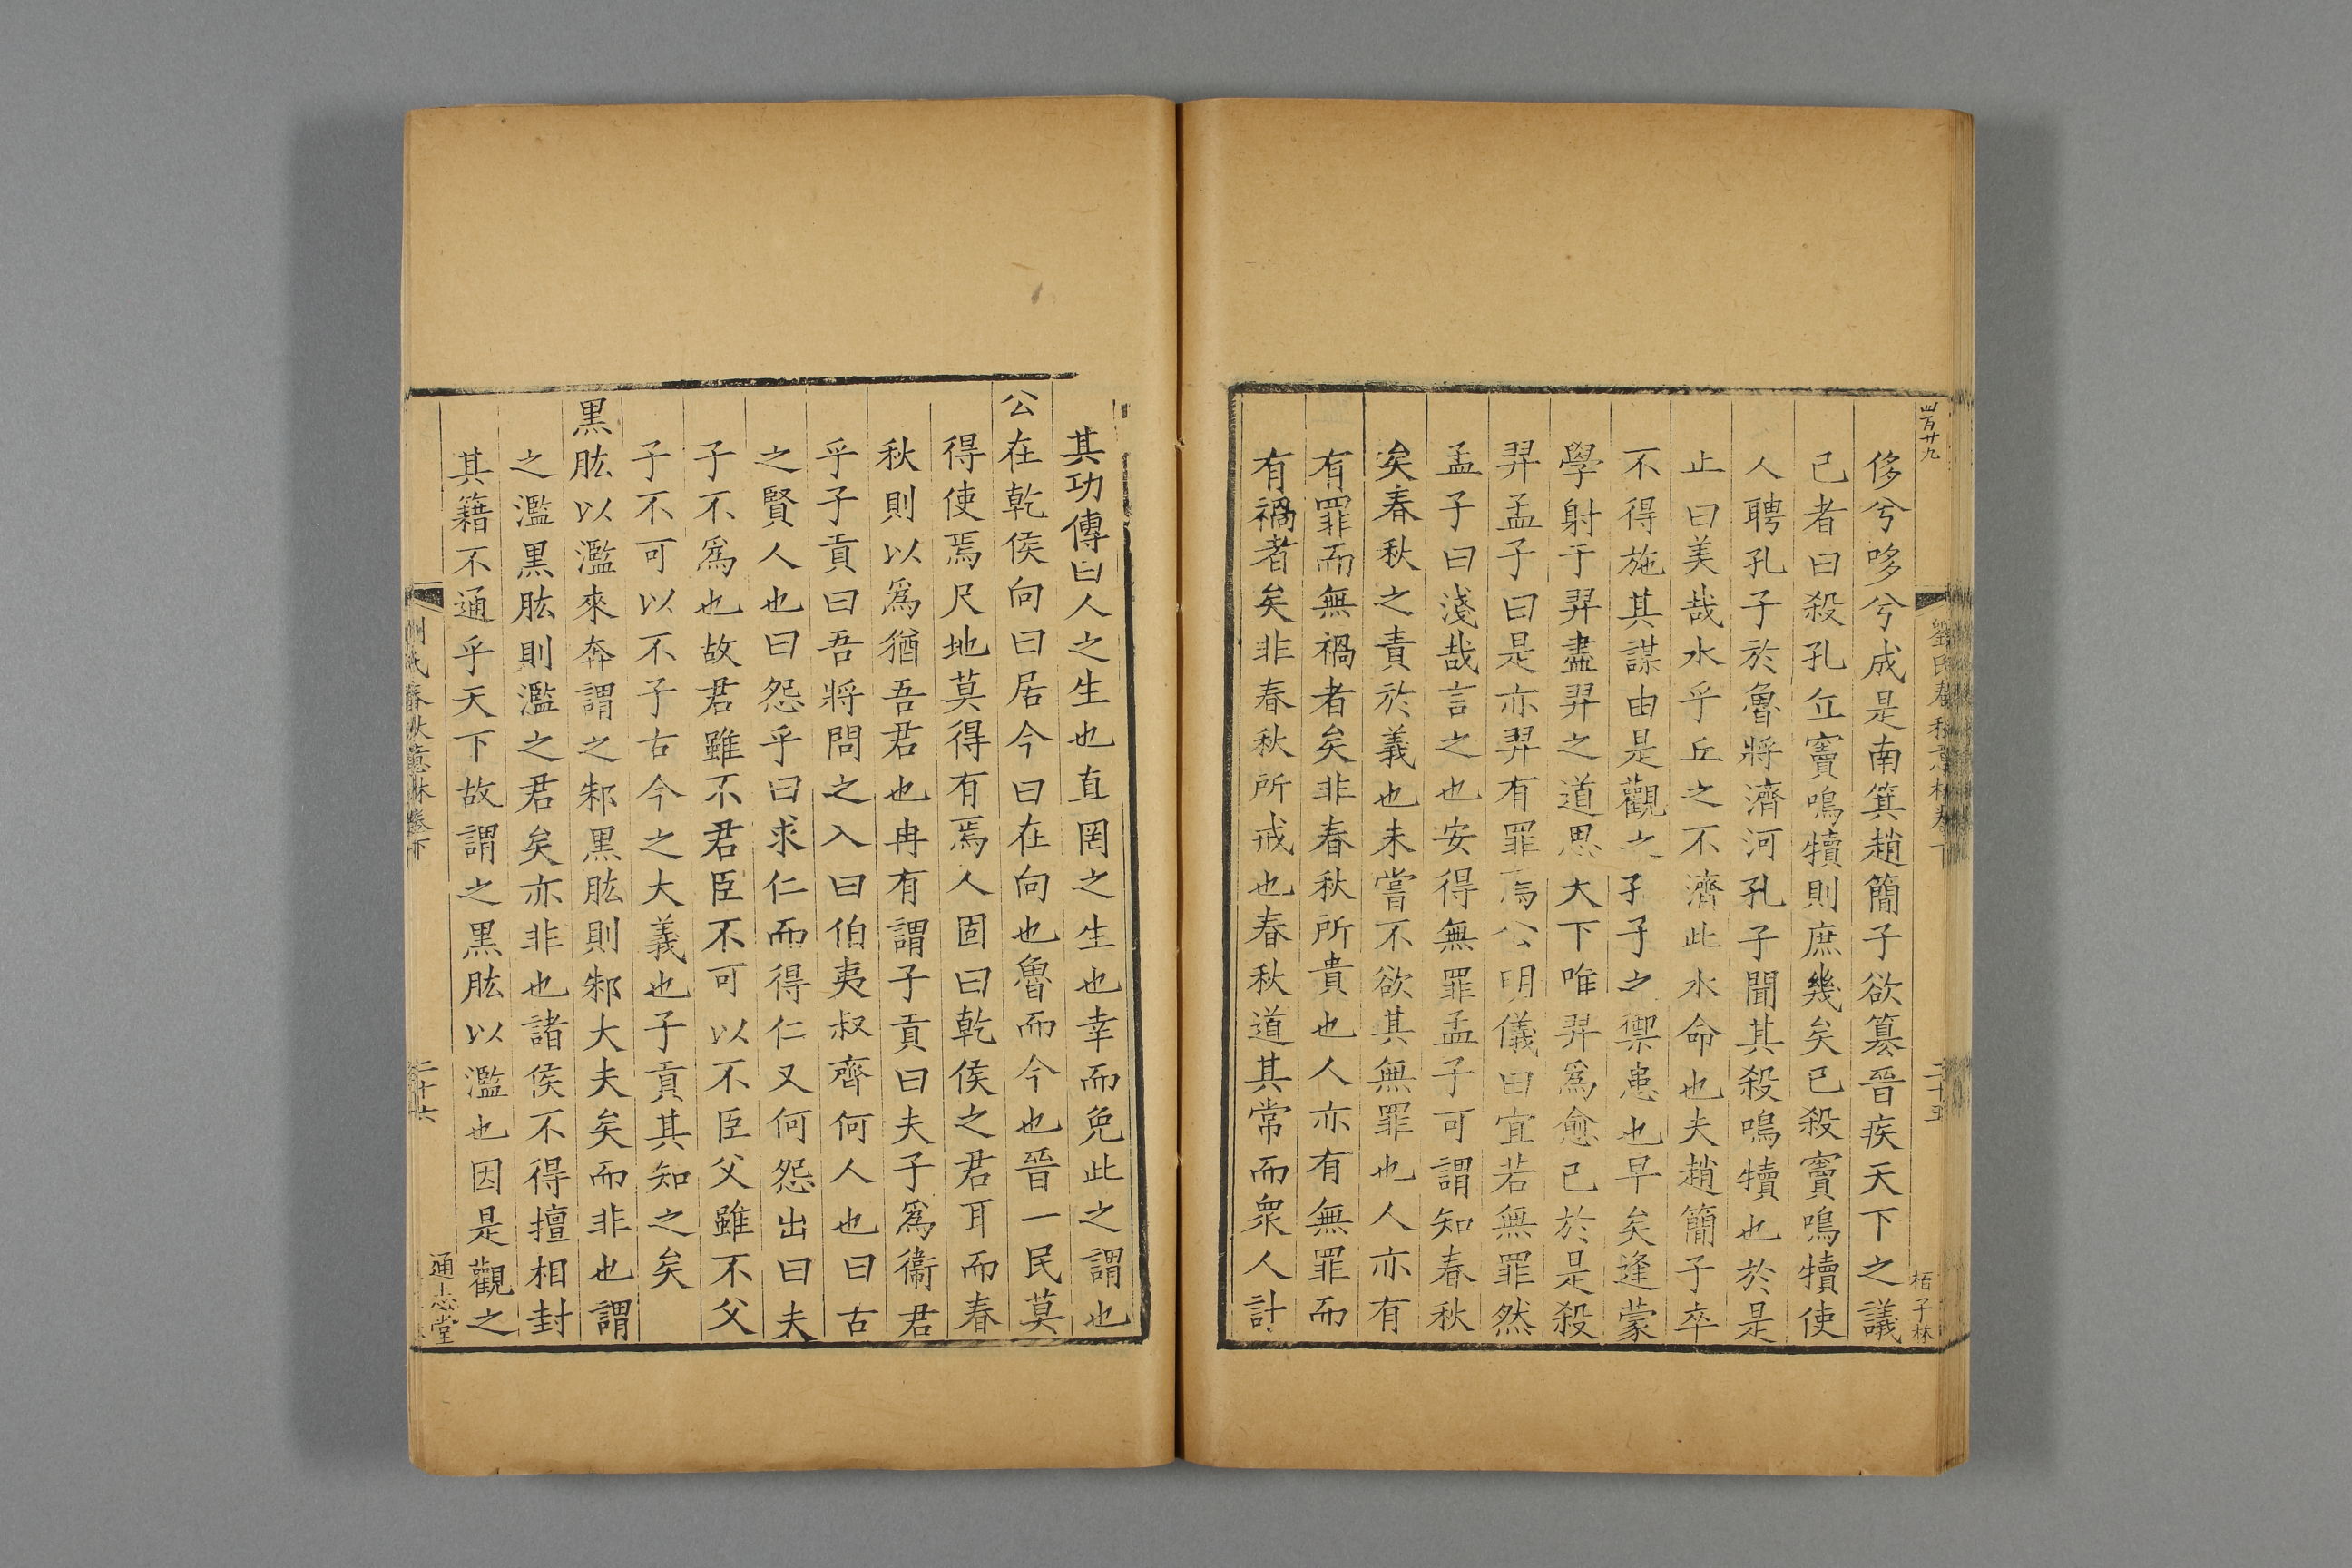 侈兮哆兮成是南箕趙簡子欲簒晉疾天下之議
己者曰殺孔丘竇鳴犢則庶幾矣已殺竇鳴犢使
人聘孔子於魯將濟河孔子聞其殺鳴犢也於是
止曰美哉水乎丘之不濟此水命也夫趙簡子卒
不得施其謀由是觀之孔子之禦患也早矣逢蒙
學射于羿盡羿之道思天下唯羿爲愈已於是殺
羿孟子曰是亦羿有罪焉公明儀曰宜若無罪然
孟子曰淺哉言之也安得無罪孟子可謂知春秋
矣春秋之責於義也未嘗不欲其無罪也人亦有
有罪而無禍者矣非春秋所貴也人亦有無罪而
有禍者矣非春秋所戒也春秋道其常而衆人計
劉氏春秋意林卷下
二十五
栢子林
其功傳曰人之生也直罔之生也幸而免此之謂也
公在乾侯向曰居今曰在向也魯而今也晉一民莫
得使焉尺地莫得有焉人固曰乾侯之君耳而春
秋則以爲猶吾君也冉有謂子貢曰夫子爲衞君
乎子貢曰吾將問之入曰伯夷叔齊何人也曰古
之賢人也曰怨乎曰求仁而得仁又何怨出曰夫
子不爲也故君雖不君臣不可以不臣父雖不父
子不可以不子古今之大義也子貢其知之矣
黒肱以濫來奔謂之邾黒肱則邾大夫矣而非也謂
之濫黒肱則濫之君矣亦非也諸侯不得擅相封
其籍不通乎天下故謂之黒肱以濫也因是觀之
劉氏春秋意林卷下
二十六
通志堂